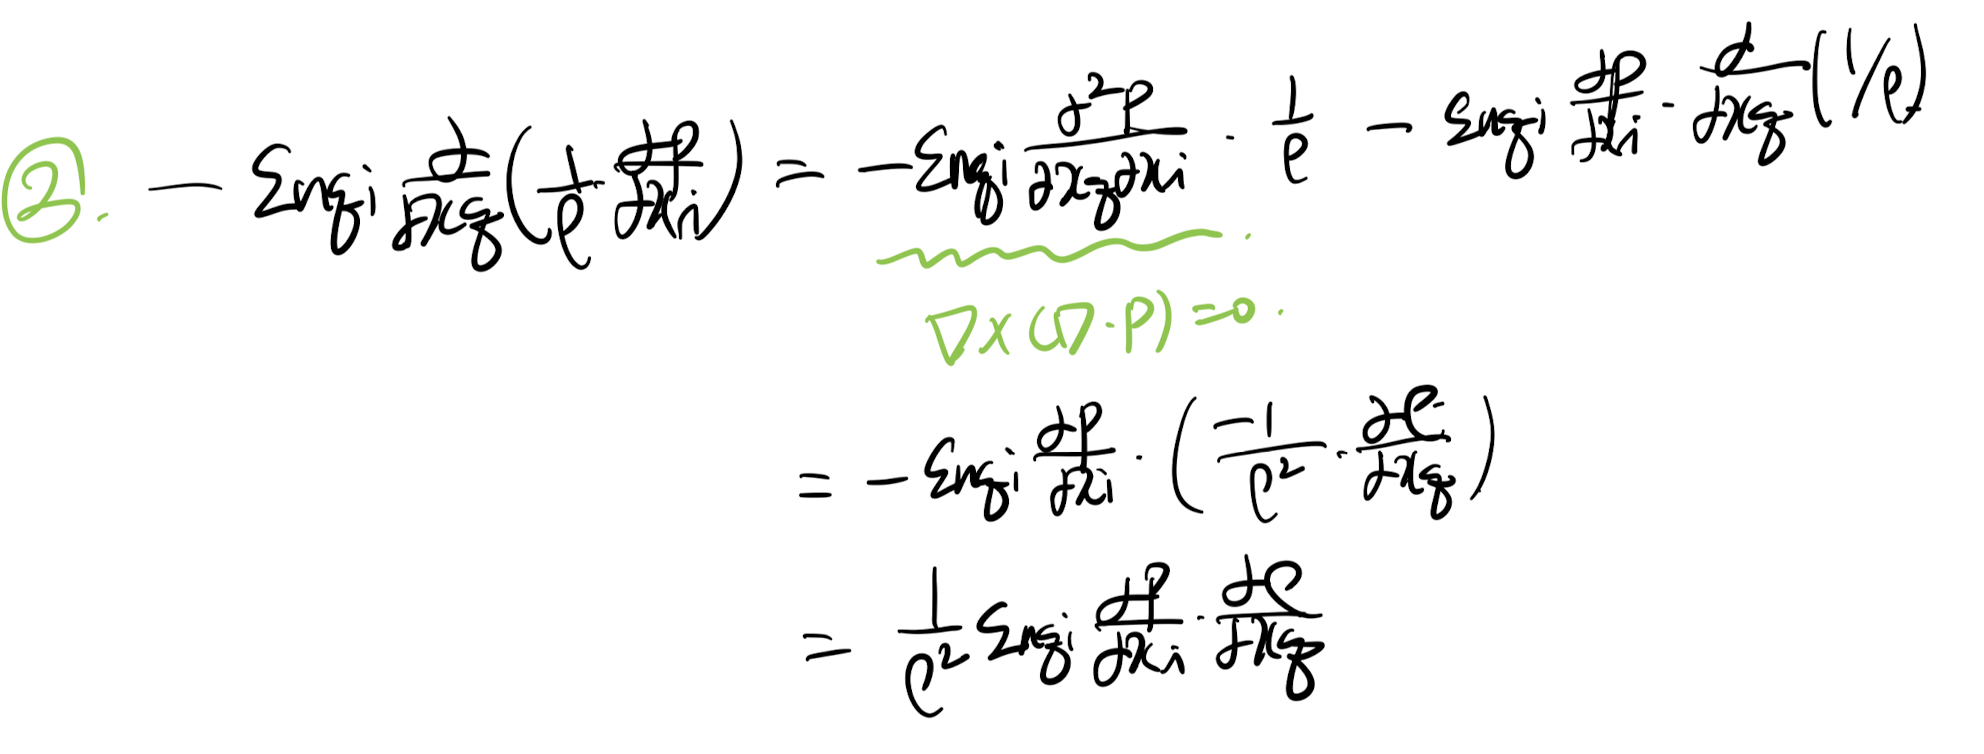 ②. − ε_{nqi} ∂/∂x_q (1/ρ · ∂P/∂x_i) = − ε_{nqi} ∂²P/∂x_q∂x_i · 1/ρ − ε_{nqi} ∂P/∂x_i · ∂/∂x_q (1/ρ)
∇×(∇·P)=0.
= − ε_{nqi} ∂P/∂x_i · (−1/ρ² · ∂ρ/∂x_q)
= 1/ρ² ε_{nqi} ∂P/∂x_i · ∂ρ/∂x_q